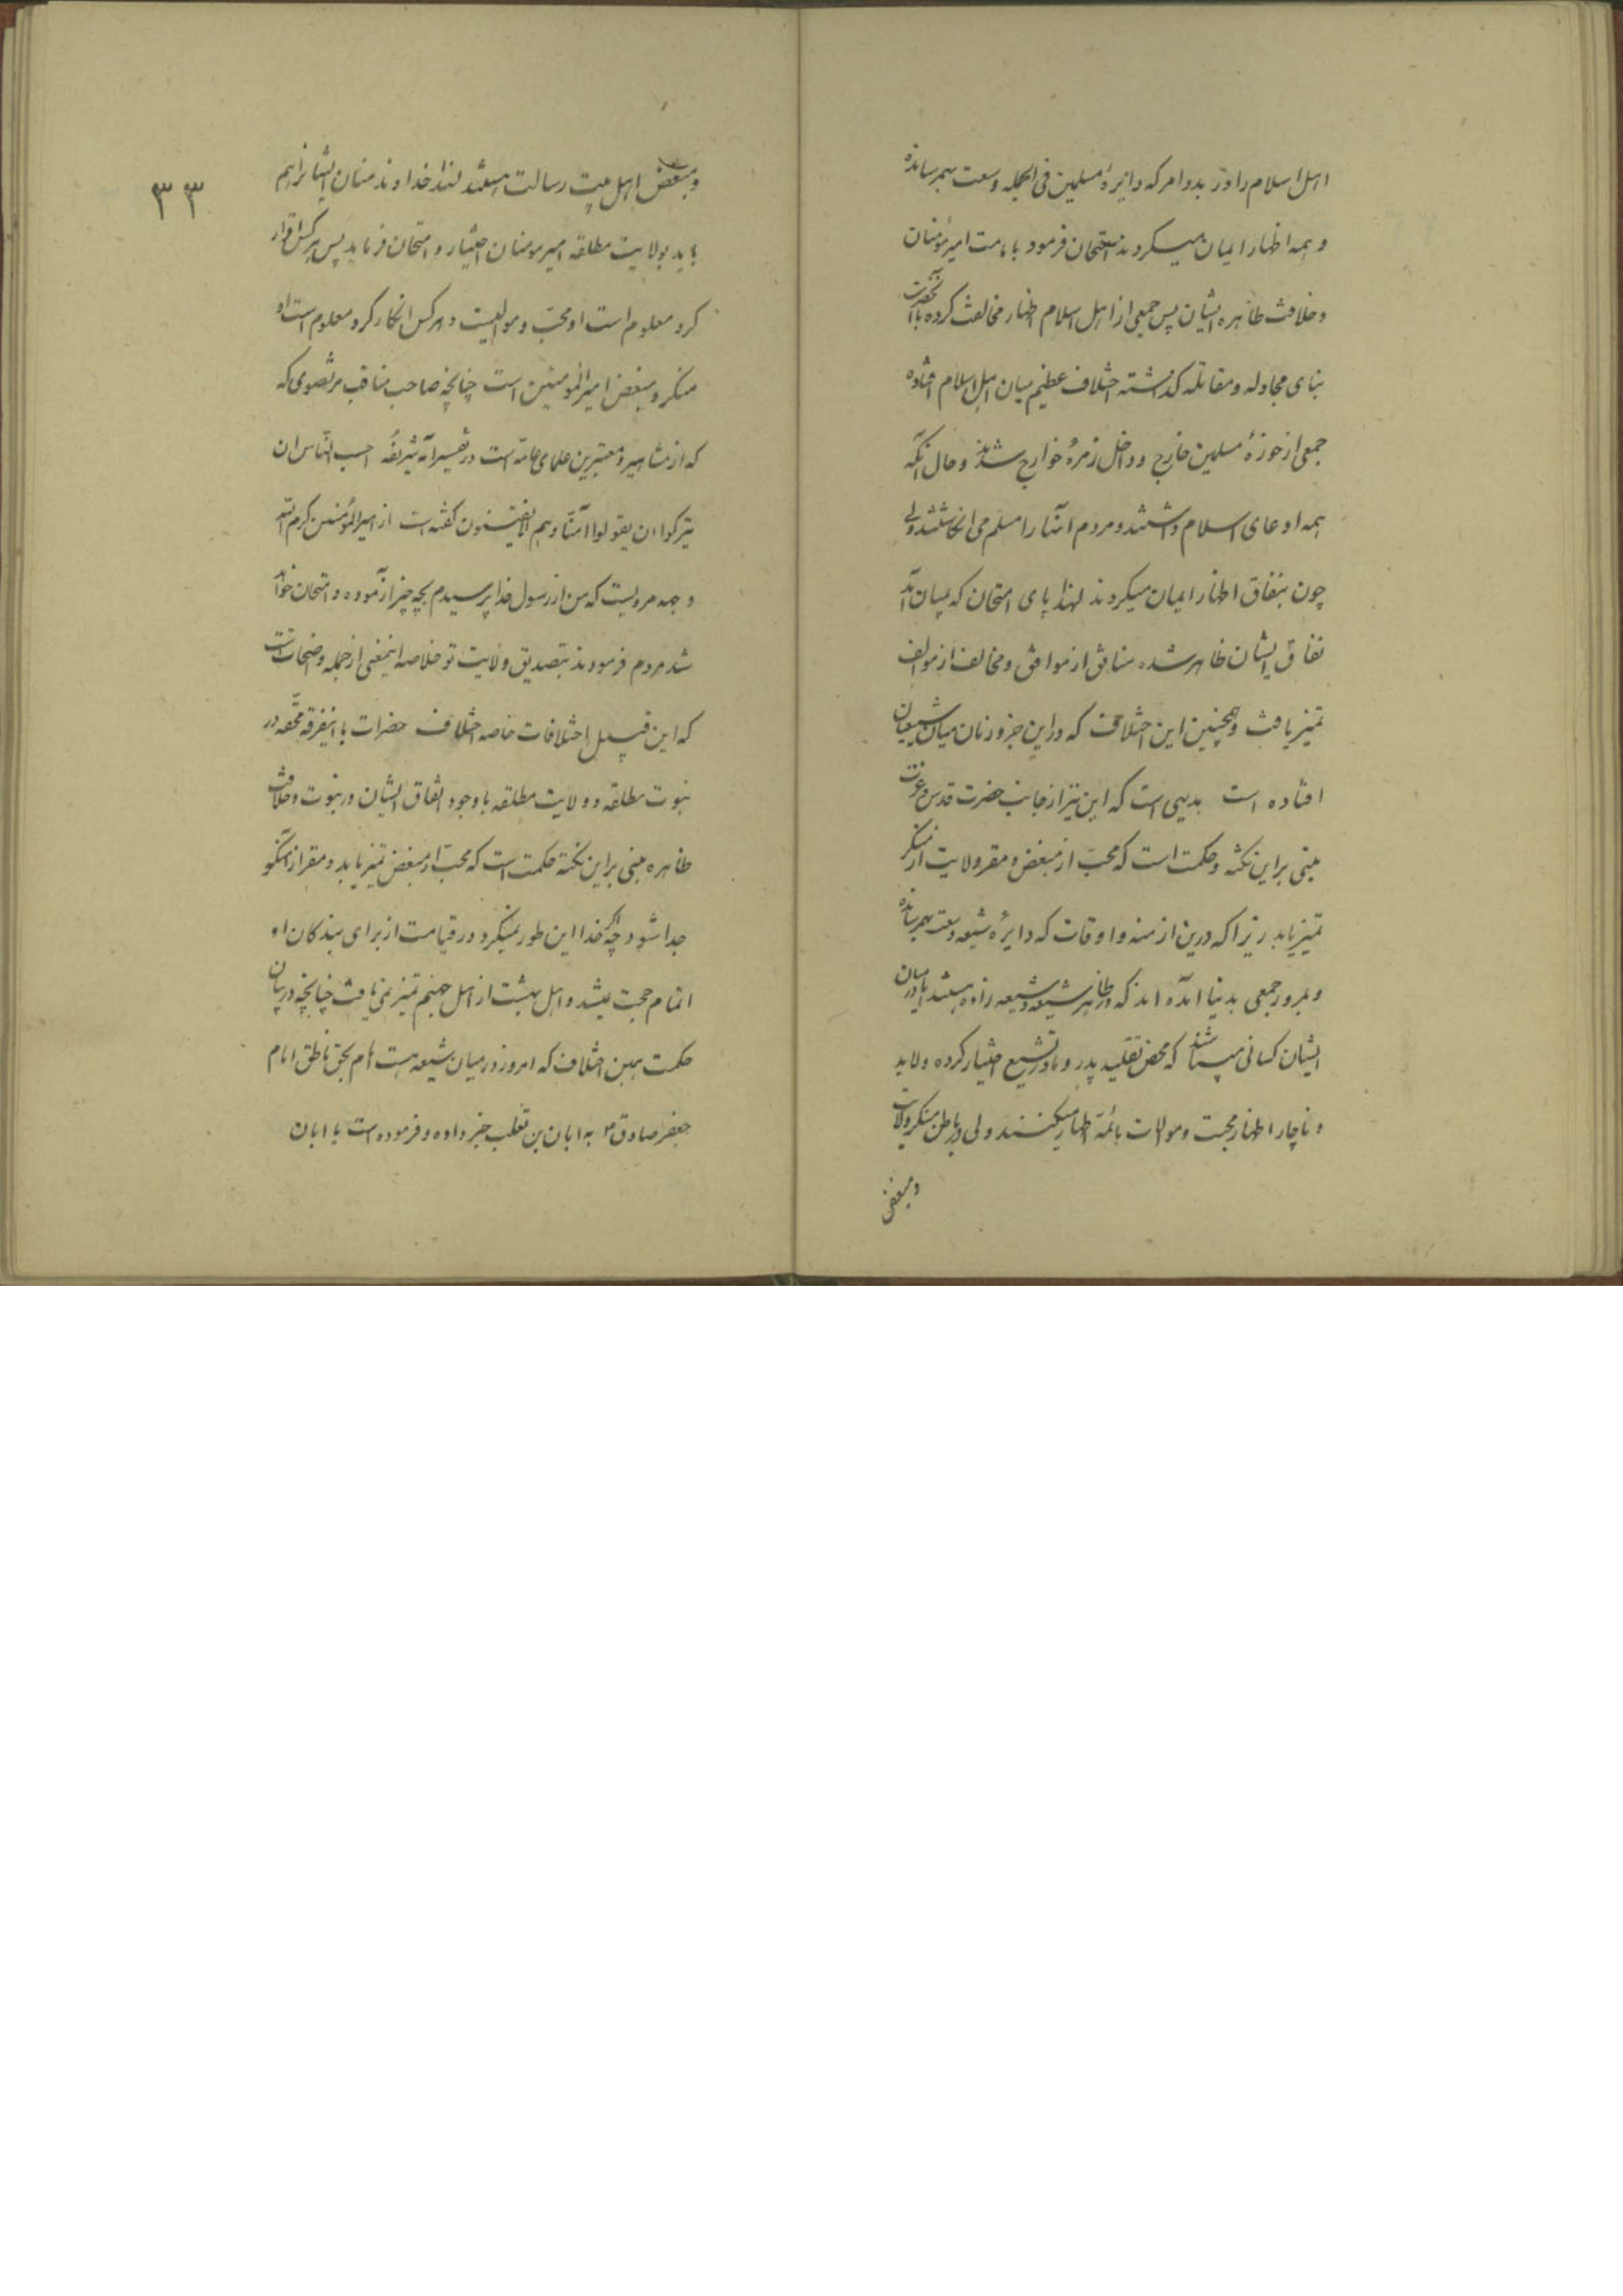 اهل اسلام را در بدو امر که دایرهٔ مسلمین فی الجمله وسعت بهمرسانده
و همه اظهار ایمان میکردند امتحان فرمود بامامت امیر مؤمنان
و خلافت ظاهره ایشان پس جمعی از اهل اسلام اظهار مخالفت کرده با آنحضرت
بنای مجادله و مقاتله گذاشته اختلاف عظیم میان اهل اسلام افتاده
جمعی از حوزهٔ مسلمین خارج و داخل زمرهٔ خوارج شدند و حال آنکه
همه ادعای اسلام داشتند و مردم آنها را مسلم می انگاشتند ولی
چون بنفاق اظهار ایمان میکردند لهذا پای امتحان که بمیان آمد
نفاق ایشان ظاهر شده منافق از موافق و مخالف از موالف
تمیز یافت و همچنین این اختلاف که در این جزو زمان میان شیعیان
افتاده است بدیهی است که این نیز از جانب حضرت قدس و عزت
مبنی بر این نکته و حکمت است که محبّ از مبغض و مقر ولایت از منکر
تمیز یابد زیرا که درین ازمنه و اوقات که دایرهٔ شیعه وسعت بهمرسانده
و بمرور جمعی بدنیا آمده اند که در ظاهر شیعه و شیعه زاده هستند اما در میان
ایشان کسانی میباشند که محض تقلید پدر و مادر تشیع اختیار کرده و لابد
و ناچار اظهار محبت و موالات بائمّه اطهار میکنند ولی در باطن منکر ولایت
و مبغض
۳۳
و مبغض اهل بیت رسالت هستند لهذا خداوند منان ایشانرا هم
باید بولایت مطلقه امیر مومنان اختیار و امتحان فرماید پس هر کس اقرار
کرد معلوم است او محبّ و موالیست و هر کس انکار کرد معلوم است او
منکر و مبغض امیرالمؤمنین است چنانچه صاحب مناقب مرتضوی که
که از مشاهیر و معتبرین علمای عامّه است در تفسیر آیهٔ شریفهٔ احسب النّاس ان
یترکوا ان یقولوا آمنّا و هم لا یفتنون گفته است از امیرالمؤمنین کرم الله
وجهه مرویست که من از رسول خدا پرسیدم بچه چیز آزموده و امتحان خواهند
شد مردم فرمودند بتصدیق ولایت تو خلاصه اینمعنی از جمله واضحات است
که این قبیل اختلافات خاصه اختلاف حضرات با اینفرقه محقّه در
نبوت مطلقه و ولایت مطلقه با وجود اتفاق ایشان در نبوت و خلافت
ظاهره مبنی بر این نکته حکمت است که محبّ از مبغض تمیز یابد و مقر از منکر
جدا شود چه اگر خدا این طور نمیکرد در قیامت از برای بندگان او
اتمام حجت نمیشد و اهل بهشت از اهل جهنم تمیز نمی یافت چنانچه در بیان
حکمت همین اختلاف که امروز در میان شیعه هست امام بحق ناطق امام
جعفر صادق ۴ به ابان بن تغلب خبر داده و فرموده است یا ابان